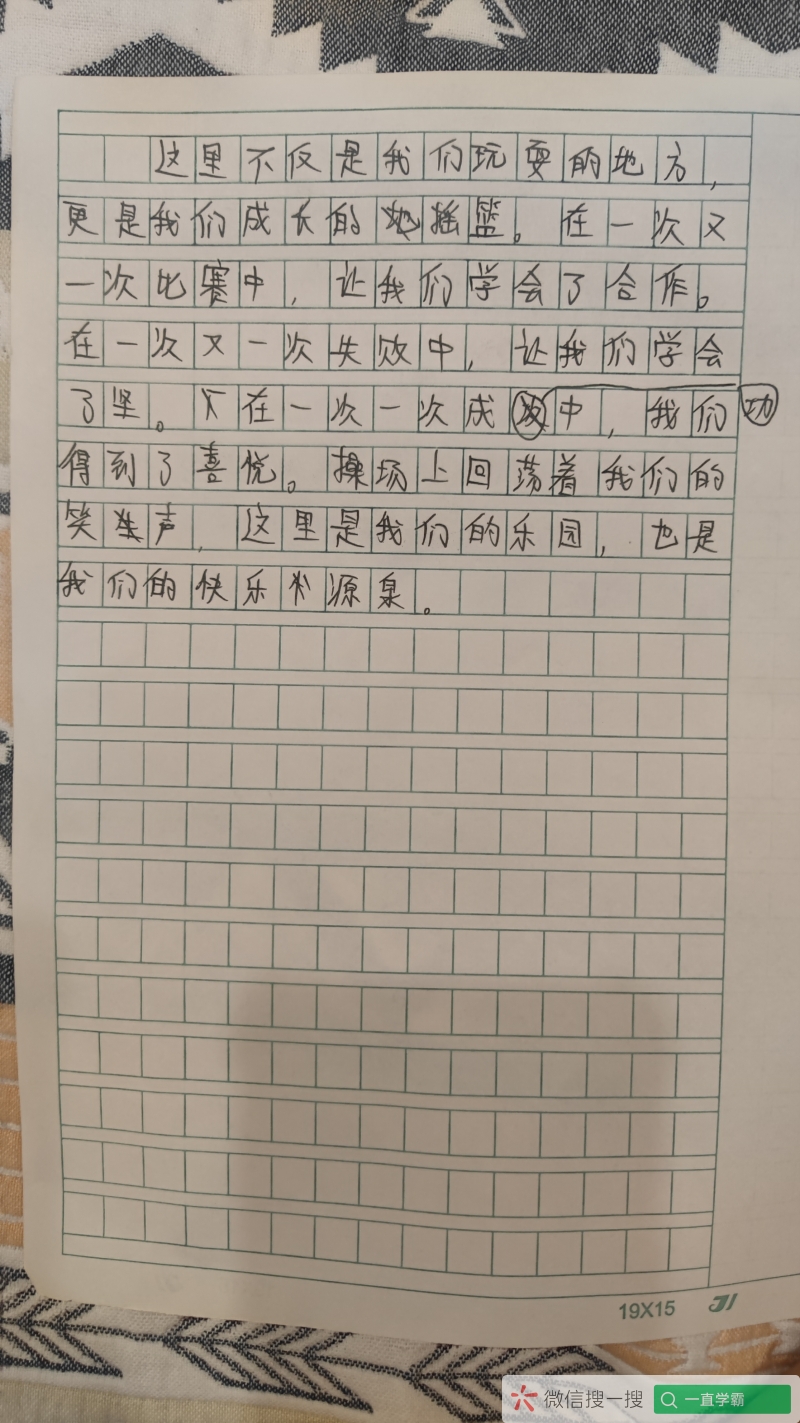 这里不仅是我们玩耍的地方，
更是我们成长的摇篮。在一次又
一次比赛中，让我们学会了合作。
在一次又一次失败中，让我们学会
了坚。在一次一次成中，我们功
得到了喜悦。操场上回荡着我们的
笑声，这里是我们的乐园，也是
我们的快乐源泉。
19X15
微信搜一搜 一直学霸